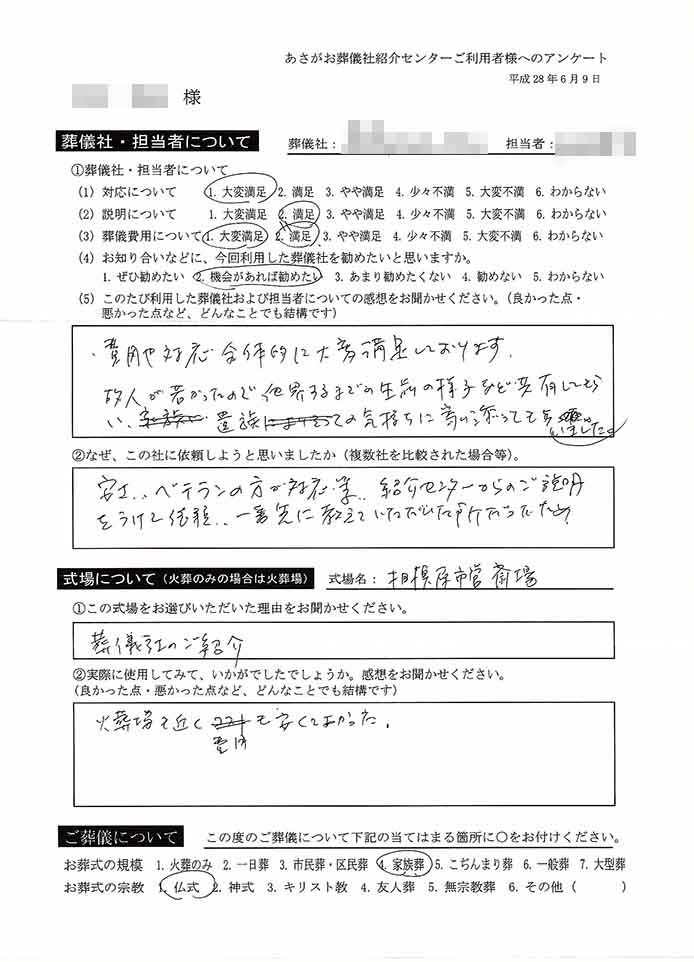 あさがお葬儀社紹介センターご利用者様へのアンケート
平成28年6月9日
様
葬儀社・担当者について 葬儀社: 担当者:
①葬儀社・担当者について
(1) 対応について 1. 大変満足 2. 満足 3. やや満足 4. 少々不満 5. 大変不満 6. わからない
(2) 説明について 1. 大変満足 2. 満足 3. やや満足 4. 少々不満 5. 大変不満 6. わからない
(3) 葬儀費用について 1. 大変満足 2. 満足 3. やや満足 4. 少々不満 5. 大変不満 6. わからない
(4) お知り合いなどに、今回利用した葬儀社を勧めたいと思いますか。
1. ぜひ勧めたい 2. 機会があれば勧めたい 3. あまり勧めたくない 4. 勧めない 5. わからない
(5) このたび利用した葬儀社および担当者についての感想をお聞かせください。(良かった点・
悪かった点など、どんなことでも結構です)
・費用や対応全体的に大変満足しております。
故人が若かったので他界するまでの生前の様子など共有してもら
い、遺族の気持ちに寄り添っても
いました。
②なぜ、この社に依頼しようと思いましたか(複数社を比較された場合等)。
安さ、ベテランの方が対応等、紹介センターからのご説明
をうけて依頼、一番先に教えていただいた所だったため
式場について(火葬のみの場合は火葬場) 式場名: 相模原市営斎場
①この式場をお選びいただいた理由をお聞かせください。
葬儀社のご紹介
②実際に使用してみて、いかがでしたでしょうか。感想をお聞かせください。
(良かった点・悪かった点など、どんなことでも結構です)
火葬場も近く も安くてよかった。
費用
ご葬儀について この度のご葬儀について下記の当てはまる箇所に○をお付けください。
お葬式の規模 1. 火葬のみ 2. 一日葬 3. 市民葬・区民葬 4. 家族葬 5. こぢんまり葬 6. 一般葬 7. 大型葬
お葬式の宗教 1. 仏式 2. 神式 3. キリスト教 4. 友人葬 5. 無宗教葬 6. その他 ( )